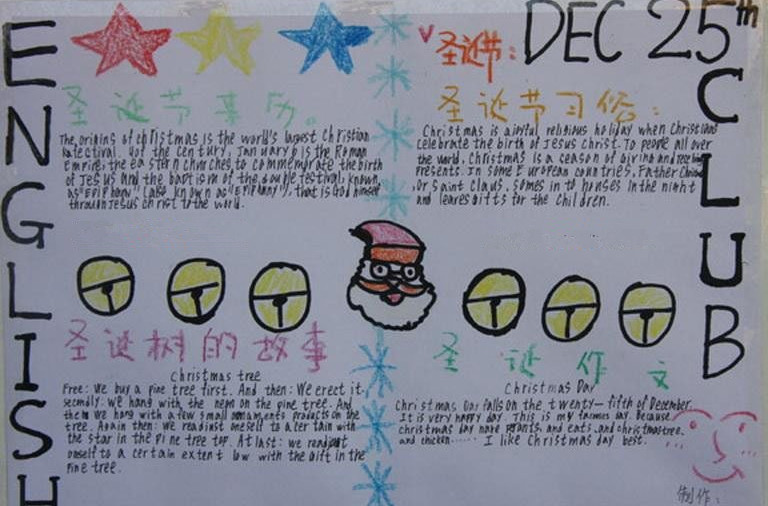 ENGLISH
圣诞节:DEC 25th
CLUB
圣诞节来历。
The origins of christmas is the world's largest Christian
of the century. January is the Roman
Empire; the EASTERN churches, to commemorate the birth
of Jesus and the baptism of the double festival, known,
as "Epiphany" (also known as "Epiphany"), that is God himself
through Jesus christ to the world.
圣诞节习俗:
Christmas is a joyful religious holiday when Christians
celebrate the birth of Jesus Christ. To people all over
the world, Christmas is a season of giving and
Presents. In some European countries, Father
Or Saint Claus, comes in to houses in the night
and leaves gifts for the children.
圣诞树的故事
Christmas tree
Free: We buy a pine tree first. And then: We erect it.
secondly: we hang with the neon on the pine tree. And
then We hang with a few small ornaments products on the
tree. Again then: we readjust oneself to a certain with
the star in the pine tree top. At last: we readjust
oneself to a certain extent low with the gift in the
Pine tree.
圣诞作文
Christmas Day
Christmas Day falls on the twenty-fifth of December.
It is very happy day. This is my day. Because
christmas day have and eats, and christmastree,
and chicken...... I like Christmas day best.
制作: